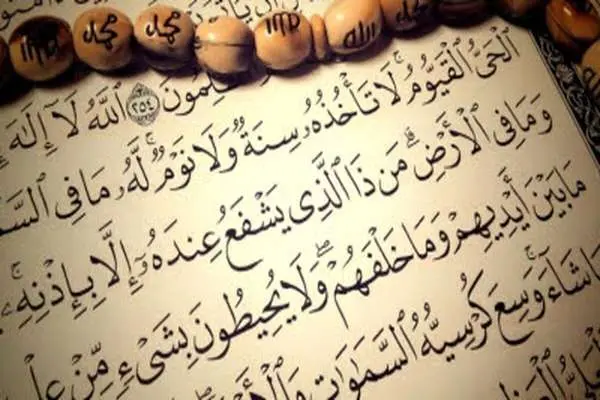 محمد محمد الله محمد
ٱللَّهُ لَآ إِلَٰهَ ٢٥٤
ٱلْحَىُّ ٱلْقَيُّومُ لَا تَأْخُذُهُۥ سِنَةٌ وَلَا نَوْمٌ لَّهُۥ مَا فِى ٱلسَّ
وَمَا فِى ٱلْأَرْضِ مَن ذَا ٱلَّذِى يَشْفَعُ عِندَهُۥٓ إِلَّا بِإِذْنِهِۦ
مَا بَيْنَ أَيْدِيهِمْ وَمَا خَلْفَهُمْ وَلَا يُحِيطُونَ بِشَىْءٍ مِّنْ عِلْ
شَآءَ وَسِعَ كُرْسِيُّهُ ٱلسَّمَٰوَٰتِ